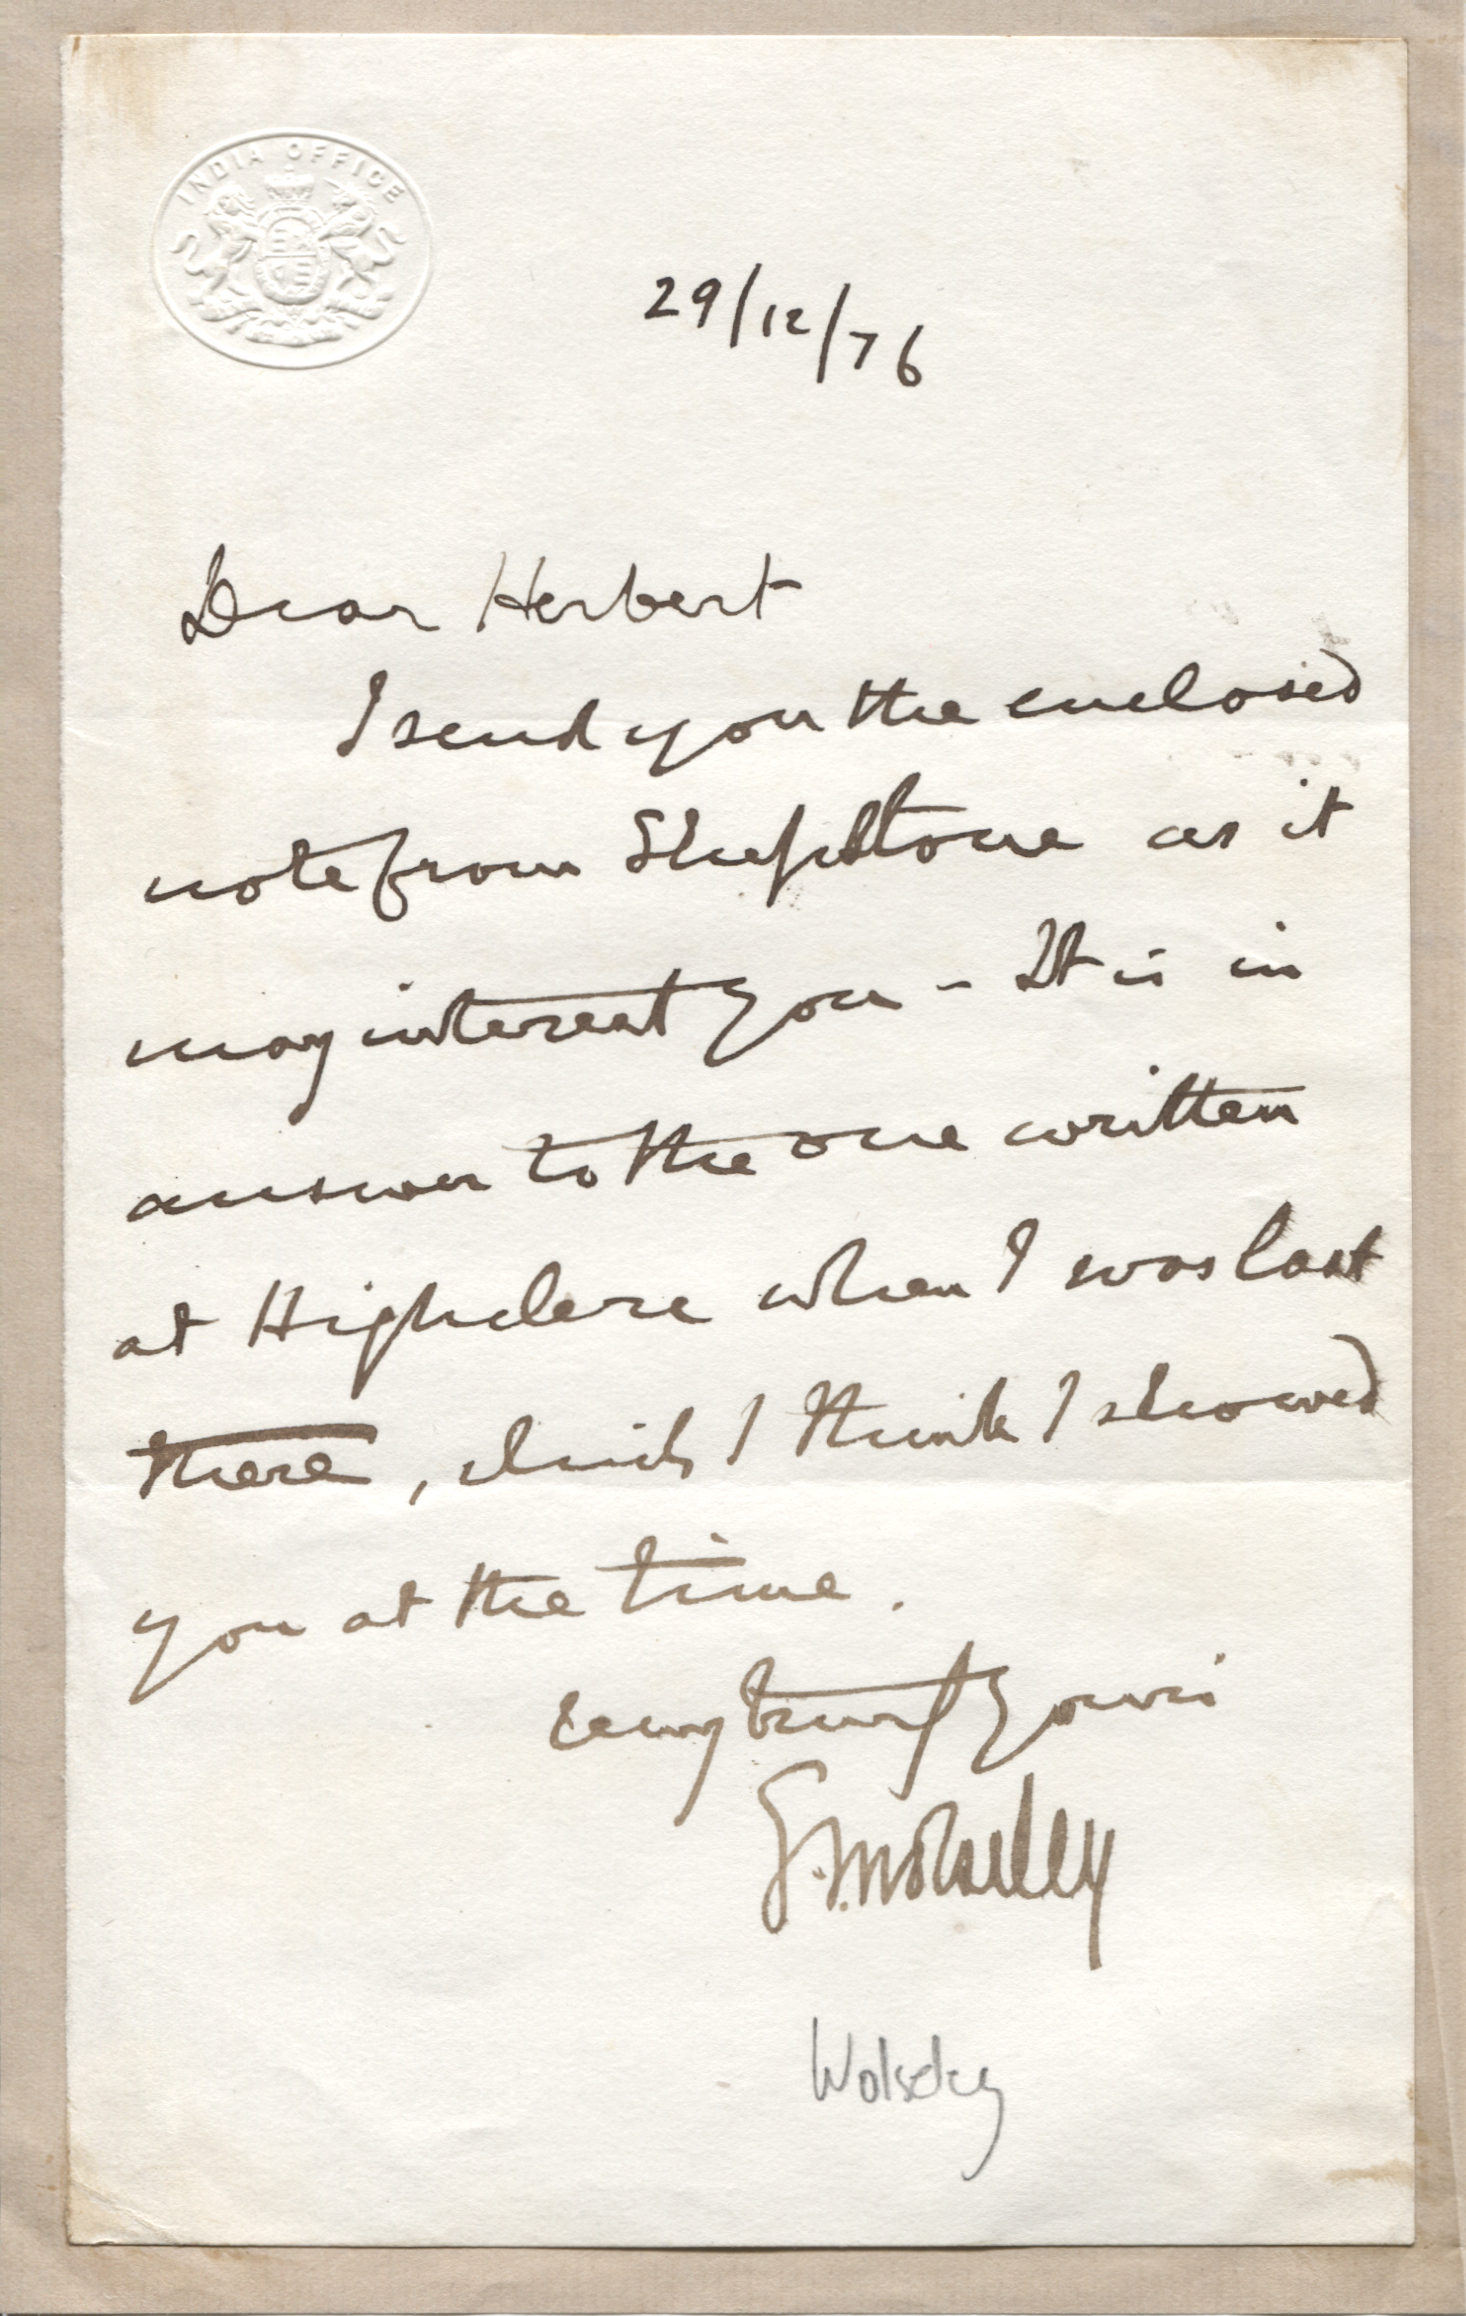 INDIA OFFICE
29/12/76
Dear Herbert
I send you the enclosed
note from Shepstone as it
may interest you - It is in
answer to the one written
at Highclere when I was last
there, which I think I showed
you at the time.
Very truly yours
G. J. Wolseley
Wolseley